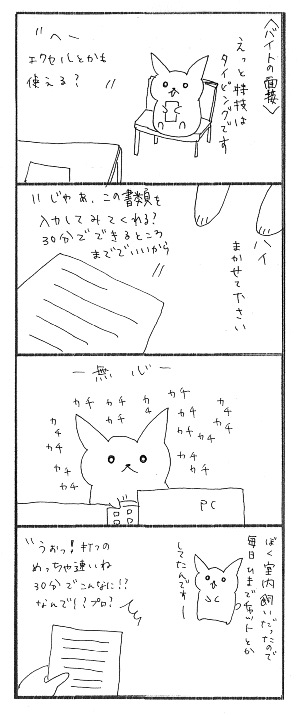 〈バイトの面接〉
えっと特技は
タイピングです
へー
エクセルとかも
使える?
じゃあ、この書類を
入力してみてくれる?
30分でできるところ
まででいいから
ハイ
まかせて下さい
ー無心ー
カチ カチ カチ カチ カチ
カチ カチ カチ カチ カチ
カチ カチ カチ カチ カチ
PC
ぼく室内飼いだったので
毎日ひまでネットとか
してたんですー
うおっ!打つの
めっちゃ速いね
30分でこんなに!?
なんで!?プロ?